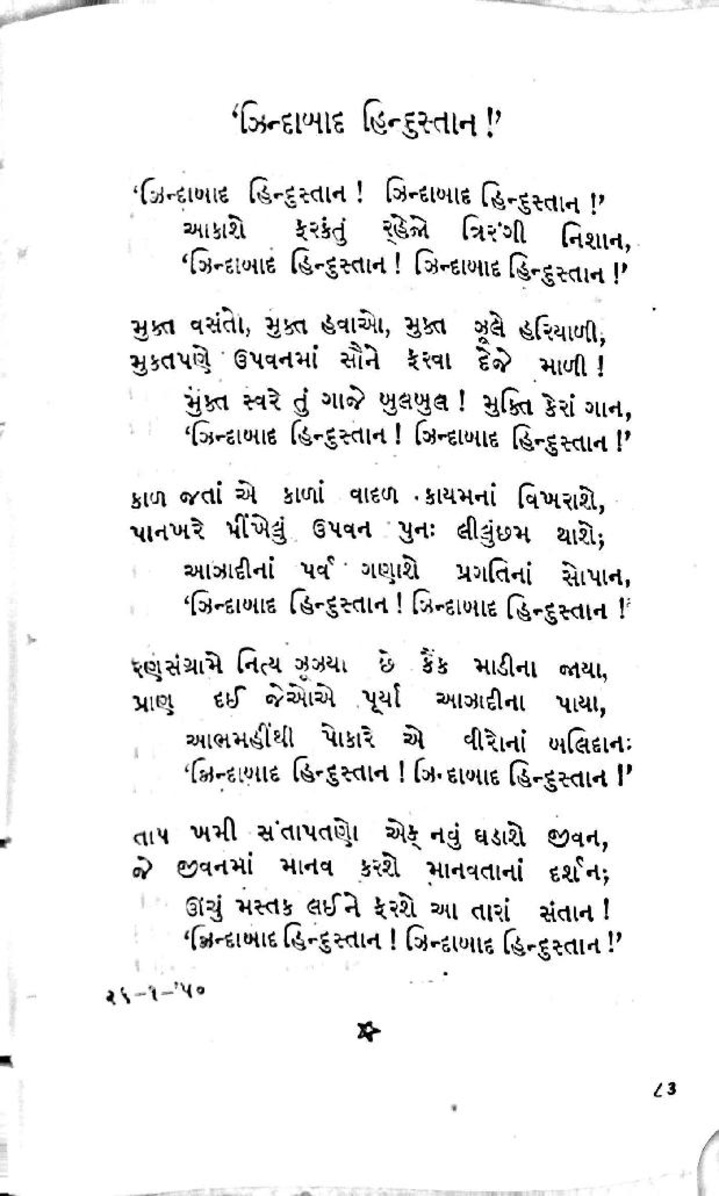 ‘ઝિન્દાબાદ હિન્દુસ્તાન !’
‘ઝિન્દાબાદ હિન્દુસ્તાન ! ઝિન્દાબાદ હિન્દુસ્તાન !’
આકાશે ફરકંતું રહેજો ત્રિરંગી નિશાન,
‘ઝિન્દાબાદ હિન્દુસ્તાન ! ઝિન્દાબાદ હિન્દુસ્તાન !’
મુક્ત વસંતો, મુક્ત હવાઓ, મુક્ત ઝૂલે હરિયાળી,
મુક્તપણે ઉપવનમાં સૌને ફરવા દેજે માળી !
મુક્ત સ્વરે તું ગાજે બુલબુલ ! મુક્તિ કેરાં ગાન,
‘ઝિન્દાબાદ હિન્દુસ્તાન ! ઝિન્દાબાદ હિન્દુસ્તાન !’
કાળ જતાં એ કાળાં વાદળ કાયમનાં વિખરાશે,
પાનખરે પીંખેલું ઉપવન પુનઃ લીલુંછમ થાશે;
આઝાદીનાં પર્વ ગણાશે પ્રગતિનાં સોપાન,
‘ઝિન્દાબાદ હિન્દુસ્તાન ! ઝિન્દાબાદ હિન્દુસ્તાન !’
રણસંગ્રામે નિત્ય ઝૂઝયા છે કૈંક માડીના જાયા,
પ્રાણ દઈ જેઓએ પૂર્યા આઝાદીના પાયા,
આભમહીંથી પોકારે એ વીરોનાં બલિદાનઃ
‘ઝિન્દાબાદ હિન્દુસ્તાન ! ઝિન્દાબાદ હિન્દુસ્તાન !’
તાપ ખમી સંતાપતણો એક નવું ઘડાશે જીવન,
જે જીવનમાં માનવ કરશે માનવતાનાં દર્શન;
ઊંચું મસ્તક લઈને ફરશે આ તારાં સંતાન !
‘ઝિન્દાબાદ હિન્દુસ્તાન ! ઝિન્દાબાદ હિન્દુસ્તાન !’
૨૬–૧–’૫૦
૮૩